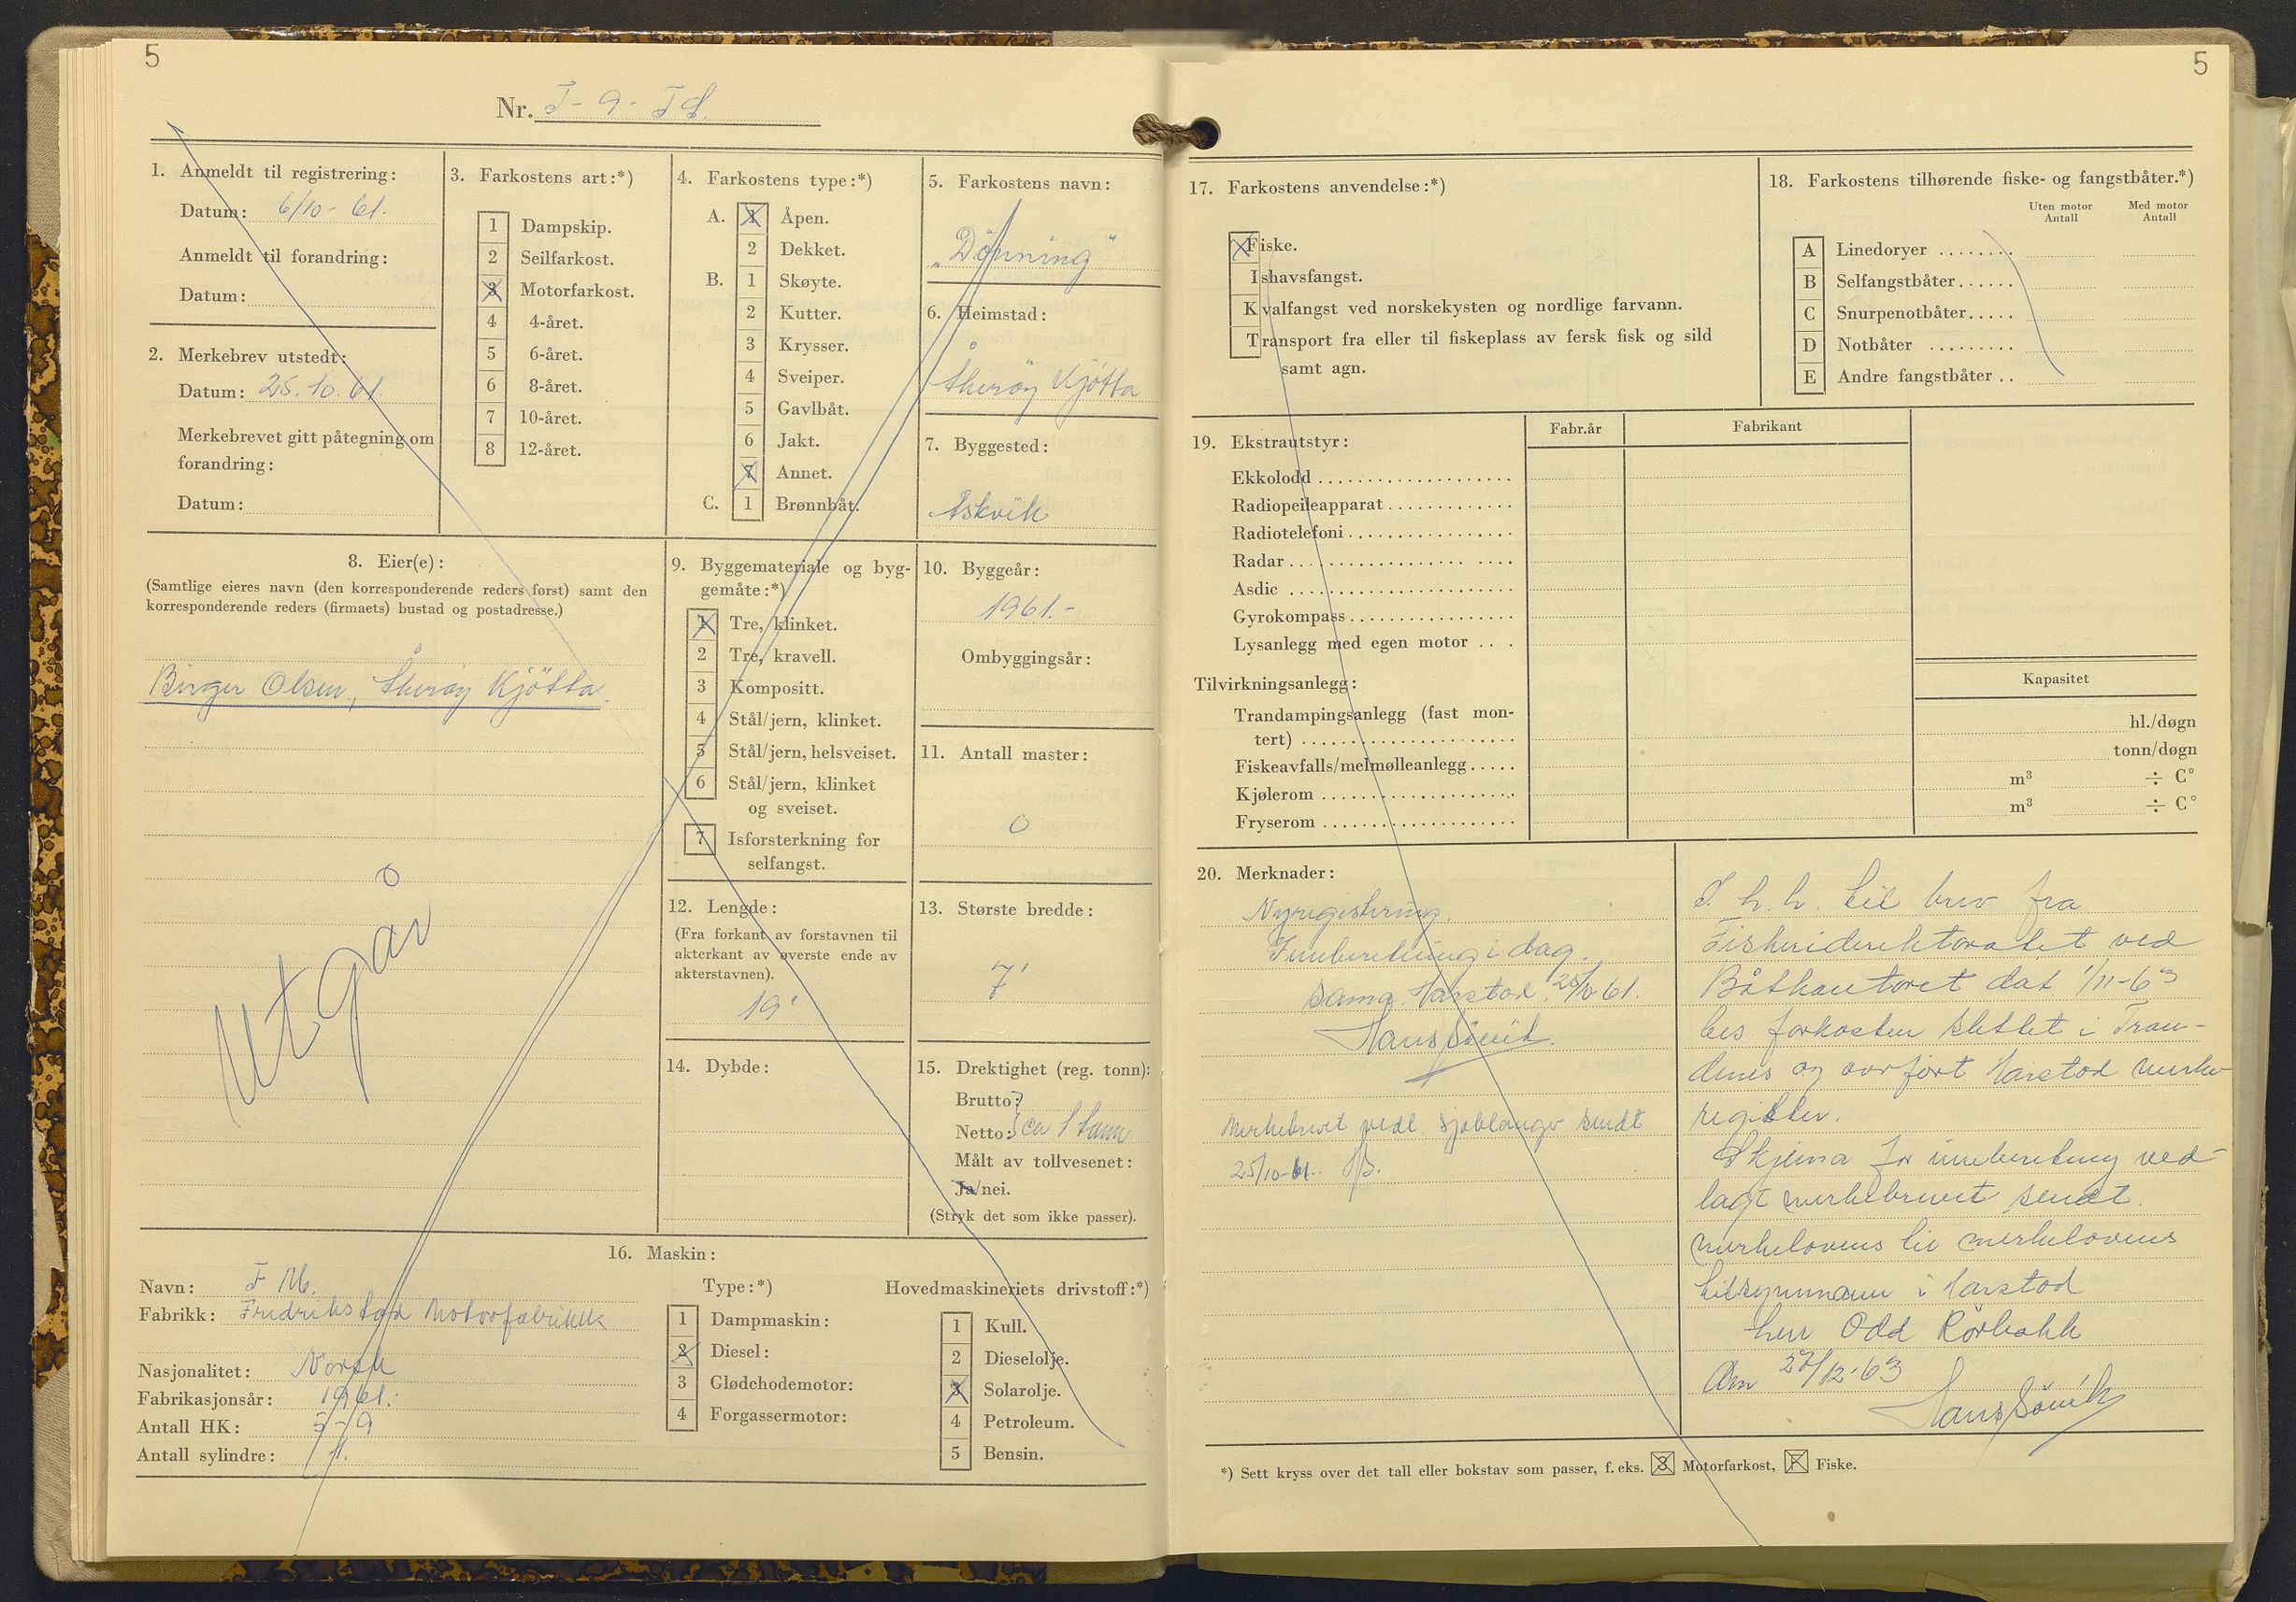 5
Nr. T-9-TS.
1. Anmeldt til registrering:
Datum: 6/10-61.
Anmeldt til forandring:
Datum:
2. Merkebrev utstedt:
Datum: 25.10.61.
Merkebrevet gitt påtegning om
forandring:
Datum:
3. Farkostens art:*)
1 Dampskip.
2 Seilfarkost.
3 Motorfarkost.
4 4-året.
5 6-året.
6 8-året.
7 10-året.
8 12-året.
4. Farkostens type:*)
A. 1 Åpen.
2 Dekket.
B. 1 Skøyte.
2 Kutter.
3 Krysser.
4 Sveiper.
5 Gavlbåt.
6 Jakt.
7 Annet.
C. 1 Brønnbåt.
5. Farkostens navn:
„Dönning"
6. Heimstad:
Åkeröy Kjötta
7. Byggested:
Askvik
8. Eier(e):
(Samtlige eieres navn (den korresponderende reders først) samt den
korresponderende reders (firmaets) bustad og postadresse.)
Birger Olsen, Åkeröy Kjötta.
Utgår
9. Byggemateriale og byg-
gemåte:*)
1 Tre, klinket.
2 Tre, kravell.
3 Kompositt.
4 Stål/jern, klinket.
5 Stål/jern, helsveiset.
6 Stål/jern, klinket
og sveiset.
7 Isforsterkning for
selfangst.
10. Byggeår:
1961.-
Ombyggingsår:
11. Antall master:
0
12. Lengde:
(Fra forkant av forstavnen til
akterkant av øverste ende av
akterstavnen).
19'
13. Største bredde:
7'
14. Dybde:
15. Drektighet (reg. tonn):
Brutto:
Netto: ca 1 tonn
Målt av tollvesenet:
Ja/nei.
(Stryk det som ikke passer).
16. Maskin:
Navn: F M.
Fabrikk: Fredrikstad Motorfabrikk
Nasjonalitet: Norsk
Fabrikasjonsår: 1961.
Antall HK: 5-9
Antall sylindre: 1.
Type:*)
1 Dampmaskin:
2 Diesel:
3 Glødehodemotor:
4 Forgassermotor:
Hovedmaskineriets drivstoff:*)
1 Kull.
2 Dieselolje.
3 Solarolje.
4 Petroleum.
5 Bensin.
5
17. Farkostens anvendelse:*)
Fiske.
Ishavsfangst.
Kvalfangst ved norskekysten og nordlige farvann.
Transport fra eller til fiskeplass av fersk fisk og sild
samt agn.
18. Farkostens tilhørende fiske- og fangstbåter.*)
Uten motor Antall
Med motor Antall
A Linedoryer
B Selfangstbåter
C Snurpenotbåter
D Notbåter
E Andre fangstbåter
19. Ekstrautstyr:
Fabr.år
Fabrikant
Ekkolodd
Radiopeileapparat
Radiotelefoni
Radar
Asdic
Gyrokompass
Lysanlegg med egen motor
Tilvirkningsanlegg:
Kapasitet
Trandampingsanlegg (fast mon-
tert) hl./døgn
Fiskeavfalls/melmølleanlegg tonn/døgn
Kjølerom m³ ÷ C°
Fryserom m³ ÷ C°
20. Merknader:
Nyregistering.
Innberetning i dag.
Sama. Harstad. 25/10 61.
Hans Sövik
Merkebrevet vedl. sjøblanger sendt
25/10-61. HS.
I h. h. til brev fra
Fiskeridirektoratet ved
Båtkontoret dat 1/11-63
bes farkosten slettet i Tron-
denes og overfört Harstad merke-
register.
Skjema for innberetning ved-
lagt merkebrevet sendt
merkelovens til merkelovens
tilsynsmann i Harstad
herr Odd Rörbakk
Den 27/12-63
Hans Sövik
*) Sett kryss over det tall eller bokstav som passer, f. eks. 3 Motorfarkost, F Fiske.